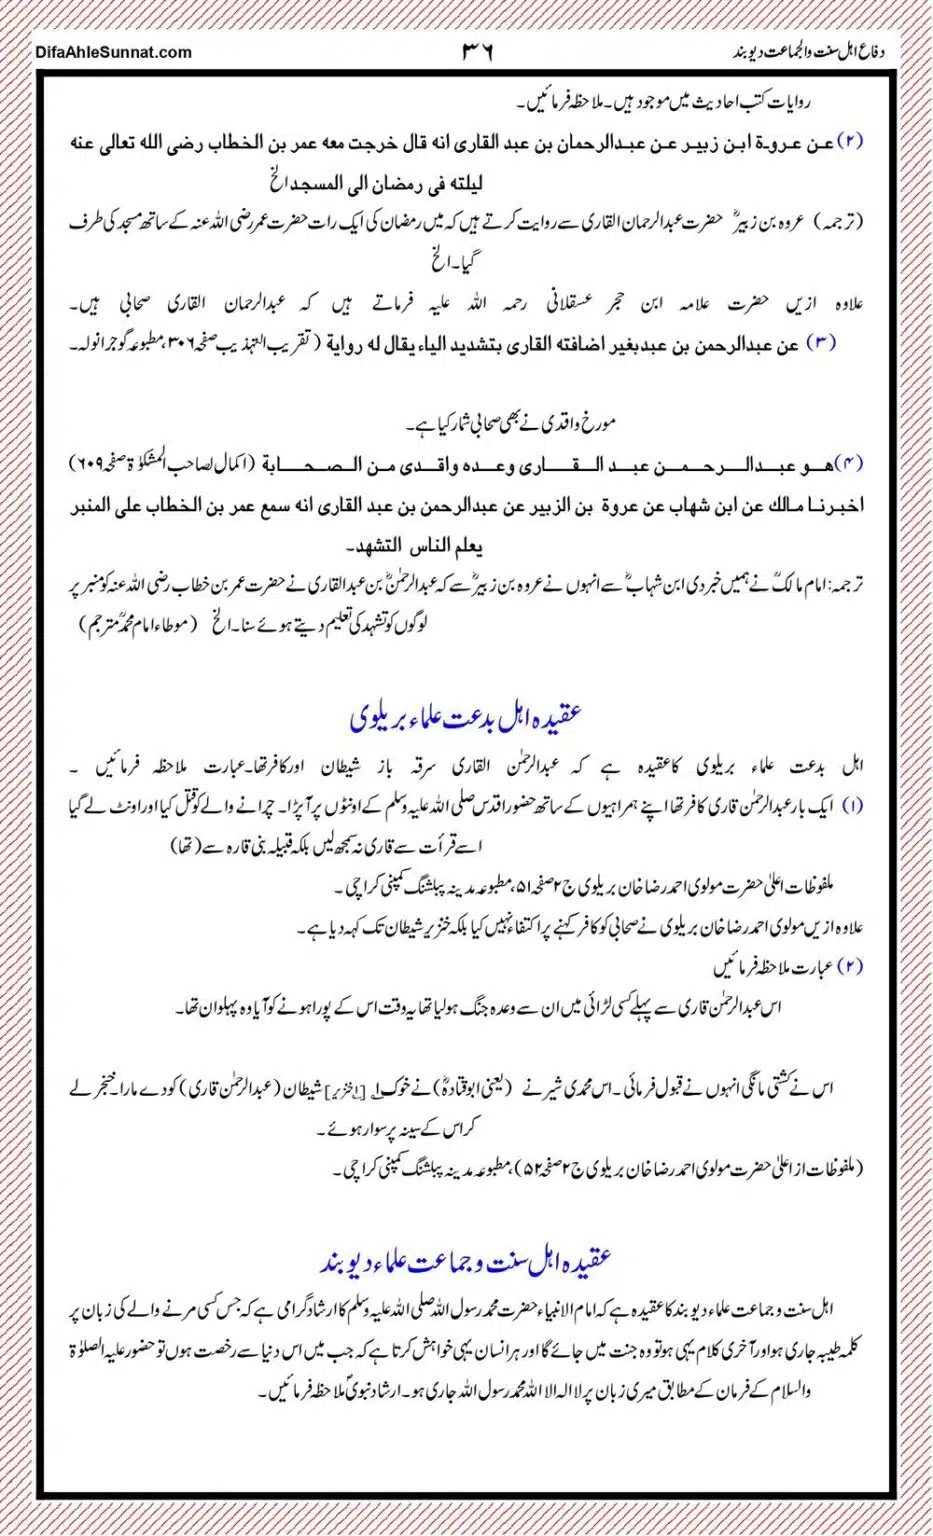 دفاع اہل سنت والجماعت دیوبند ۳۶ DifaAhleSunnat.com
روایات کتب احادیث میں موجود ہیں۔ ملاحظہ فرمائیں۔
(۲) عن عروۃ ابن زبیر عن عبدالرحمان بن عبد القاری انه قال خرجت معه عمر بن الخطاب رضی الله تعالی عنه
لیلته فی رمضان الی المسجد الخ
(ترجمہ) عروہ بن زبیرؓ حضرت عبدالرحمان القاری سے روایت کرتے ہیں کہ میں رمضان کی ایک رات حضرت عمر رضی اللہ عنہ کے ساتھ مسجد کی طرف
گیا۔ الخ
علاوہ ازیں حضرت علامہ ابن حجر عسقلانی رحمہ اللہ علیہ فرماتے ہیں کہ عبدالرحمان القاری صحابی ہیں۔
(۳) عن عبدالرحمن بن عبدبغیر اضافته القاری بتشدید الیاء یقال له روایة (تقریب التہذیب صفحہ ۳۰۶، مطبوعہ گوجرانولہ۔
مورخ واقدی نے بھی صحابی شمار کیا ہے۔
(۴) هو عبدالرحمن عبد القاری وعده واقدی من الصحابة (اکمال لصاحب المشکوٰۃ صفحہ ۶۰۹)
اخبرنا مالك عن ابن شهاب عن عروة بن الزبیر عن عبدالرحمن بن عبد القاری انه سمع عمر بن الخطاب علی المنبر
یعلم الناس التشهد۔
ترجمہ: امام مالکؒ نے ہمیں خبر دی ابن شہابؒ سے انہوں نے عروہ بن زبیرؒ سے کہ عبدالرحمٰنؓ بن عبدالقاری نے حضرت عمر بن خطاب رضی اللہ عنہ کو منبر پر
لوگوں کو تشہد کی تعلیم دیتے ہوئے سنا۔ الخ (موطاء امام محمدؒ مترجم)
عقیدہ اہل بدعت علماء بریلوی
اہل بدعت علماء بریلوی کا عقیدہ ہے کہ عبدالرحمٰن القاری سرقہ باز شیطان اور کافر تھا۔ عبارت ملاحظہ فرمائیں ۔
(۱) ایک بار عبدالرحمٰن قاری کافر تھا اپنے ہمراہیوں کے ساتھ حضور اقدس صلی اللہ علیہ وسلم کے اونٹوں پر آپڑا۔ چرانے والے کو قتل کیا اور اونٹ لے گیا
اسے قرأت سے قاری نہ سمجھ لیں بلکہ قبیلہ بنی قارہ سے (تھا)
ملفوظات اعلیٰ حضرت مولوی احمد رضا خان بریلوی ج ۲ صفحہ ۵۱، مطبوعہ مدینہ پبلشنگ کمپنی کراچی ۔
علاوہ ازیں مولوی احمد رضا خان بریلوی نے صحابی کو کافر کہنے پر اکتفاء نہیں کیا بلکہ خنزیر شیطان تک کہہ دیا ہے۔
(۲) عبارت ملاحظہ فرمائیں
اس عبدالرحمٰن قاری سے پہلے کسی لڑائی میں ان سے وعدہ جنگ ہولیا تھا یہ وقت اس کے پورا ہونے کو آیا وہ پہلوان تھا۔
اس نے کشتی مانگی انہوں نے قبول فرمائی ۔ اس محمدی شیر نے (یعنی ابوقتادہؓ) نے خوک ۱ [۱ خنزیر] شیطان (عبدالرحمٰن قاری) کو دے مارا۔ خنجر لے
کر اس کے سینہ پر سوار ہوئے ۔
(ملفوظات از اعلیٰ حضرت مولوی احمد رضا خان بریلوی ج ۲ صفحہ ۵۲)، مطبوعہ مدینہ پبلشنگ کمپنی کراچی ۔
عقیدہ اہل سنت و جماعت علماء دیوبند
اہل سنت و جماعت علماء دیوبند کا عقیدہ ہے کہ امام الانبیاء حضرت محمد رسول اللہ صلی اللہ علیہ وسلم کا ارشاد گرامی ہے کہ جس کسی مرنے والے کی زبان پر
کلمہ طیبہ جاری ہو اور آخری کلام یہی ہو تو وہ جنت میں جائے گا اور ہر انسان یہی خواہش کرتا ہے کہ جب میں اس دنیا سے رخصت ہوں تو حضور علیہ الصلوٰۃ
والسلام کے فرمان کے مطابق میری زبان پر لا الہ الا اللہ محمد رسول اللہ جاری ہو۔ ارشاد نبویؐ ملاحظہ فرمائیں۔